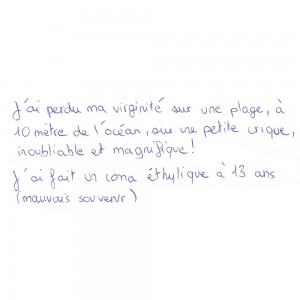 J'ai perdu ma virginité sur une plage, à
10 mètre de l'océan, sur une petite crique,
inoubliable et magnifique !
J'ai fait un coma éthylique à 13 ans
(mauvais souvenir)